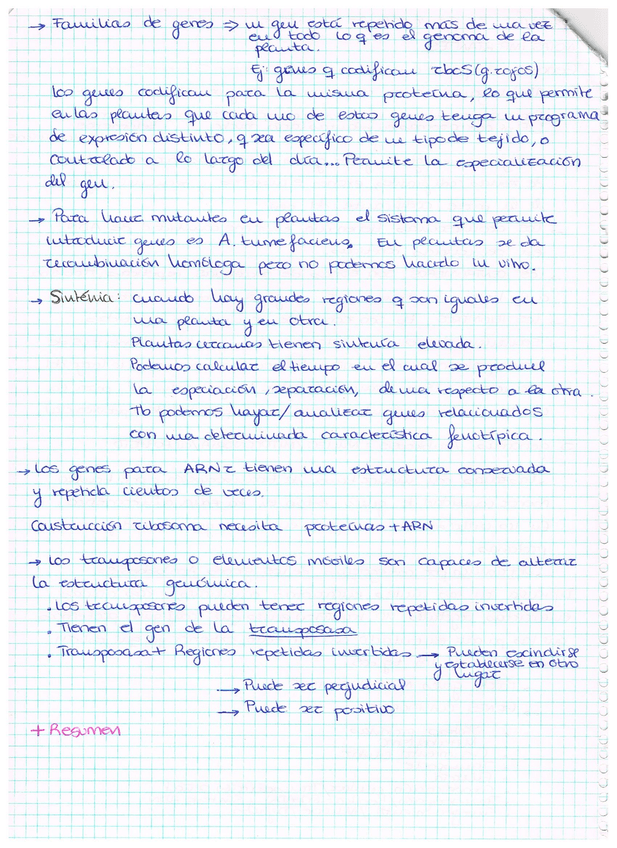 → Familias de genes ⇒ un gen está repetido más de una vez
en todo lo q es el genoma de la
planta.
Ej: genes q codifican rbcS (g. rojos)
Los genes codifican para la misma proteína, lo que permite
en las plantas que cada uno de estos genes tenga un programa
de expresión distinto, q sea específico de un tipo de tejido, o
controlado a lo largo del día... Permite la especialización
del gen.
→ Para hacer mutantes en plantas el sistema que permite
introducir genes es A. tumefaciens. En plantas se da
recombinación homóloga pero no podemos hacerlo in vitro.
→ Sinténia: cuando hay grandes regiones q son iguales en
una planta y en otra.
Plantas cercanas tienen sintenía elevada.
Podemos calcular el tiempo en el cual se produce
la especiación, separación, de una respecto a la otra.
Tb podemos hayar/analizar genes relacionados
con una determinada característica fenotípica.
→ Los genes para ARNr tienen una estructura conservada
y repetida cientos de veces.
Construcción ribosoma necesita proteínas + ARN
→ Los transposones o elementos móviles son capaces de alterar
la estructura genómica.
. Los transposones pueden tener regiones repetidas invertidas
. Tienen el gen de la transposasa
. Transposasa + Regiones repetidas invertidas → Pueden escindirse
y establecerse en otro
lugar
→ Puede ser perjudicial
→ Puede ser positivo
+ Resumen